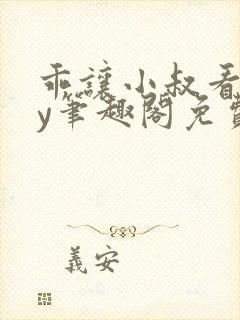 乖讓小叔看
y筆趣閣免費
義安